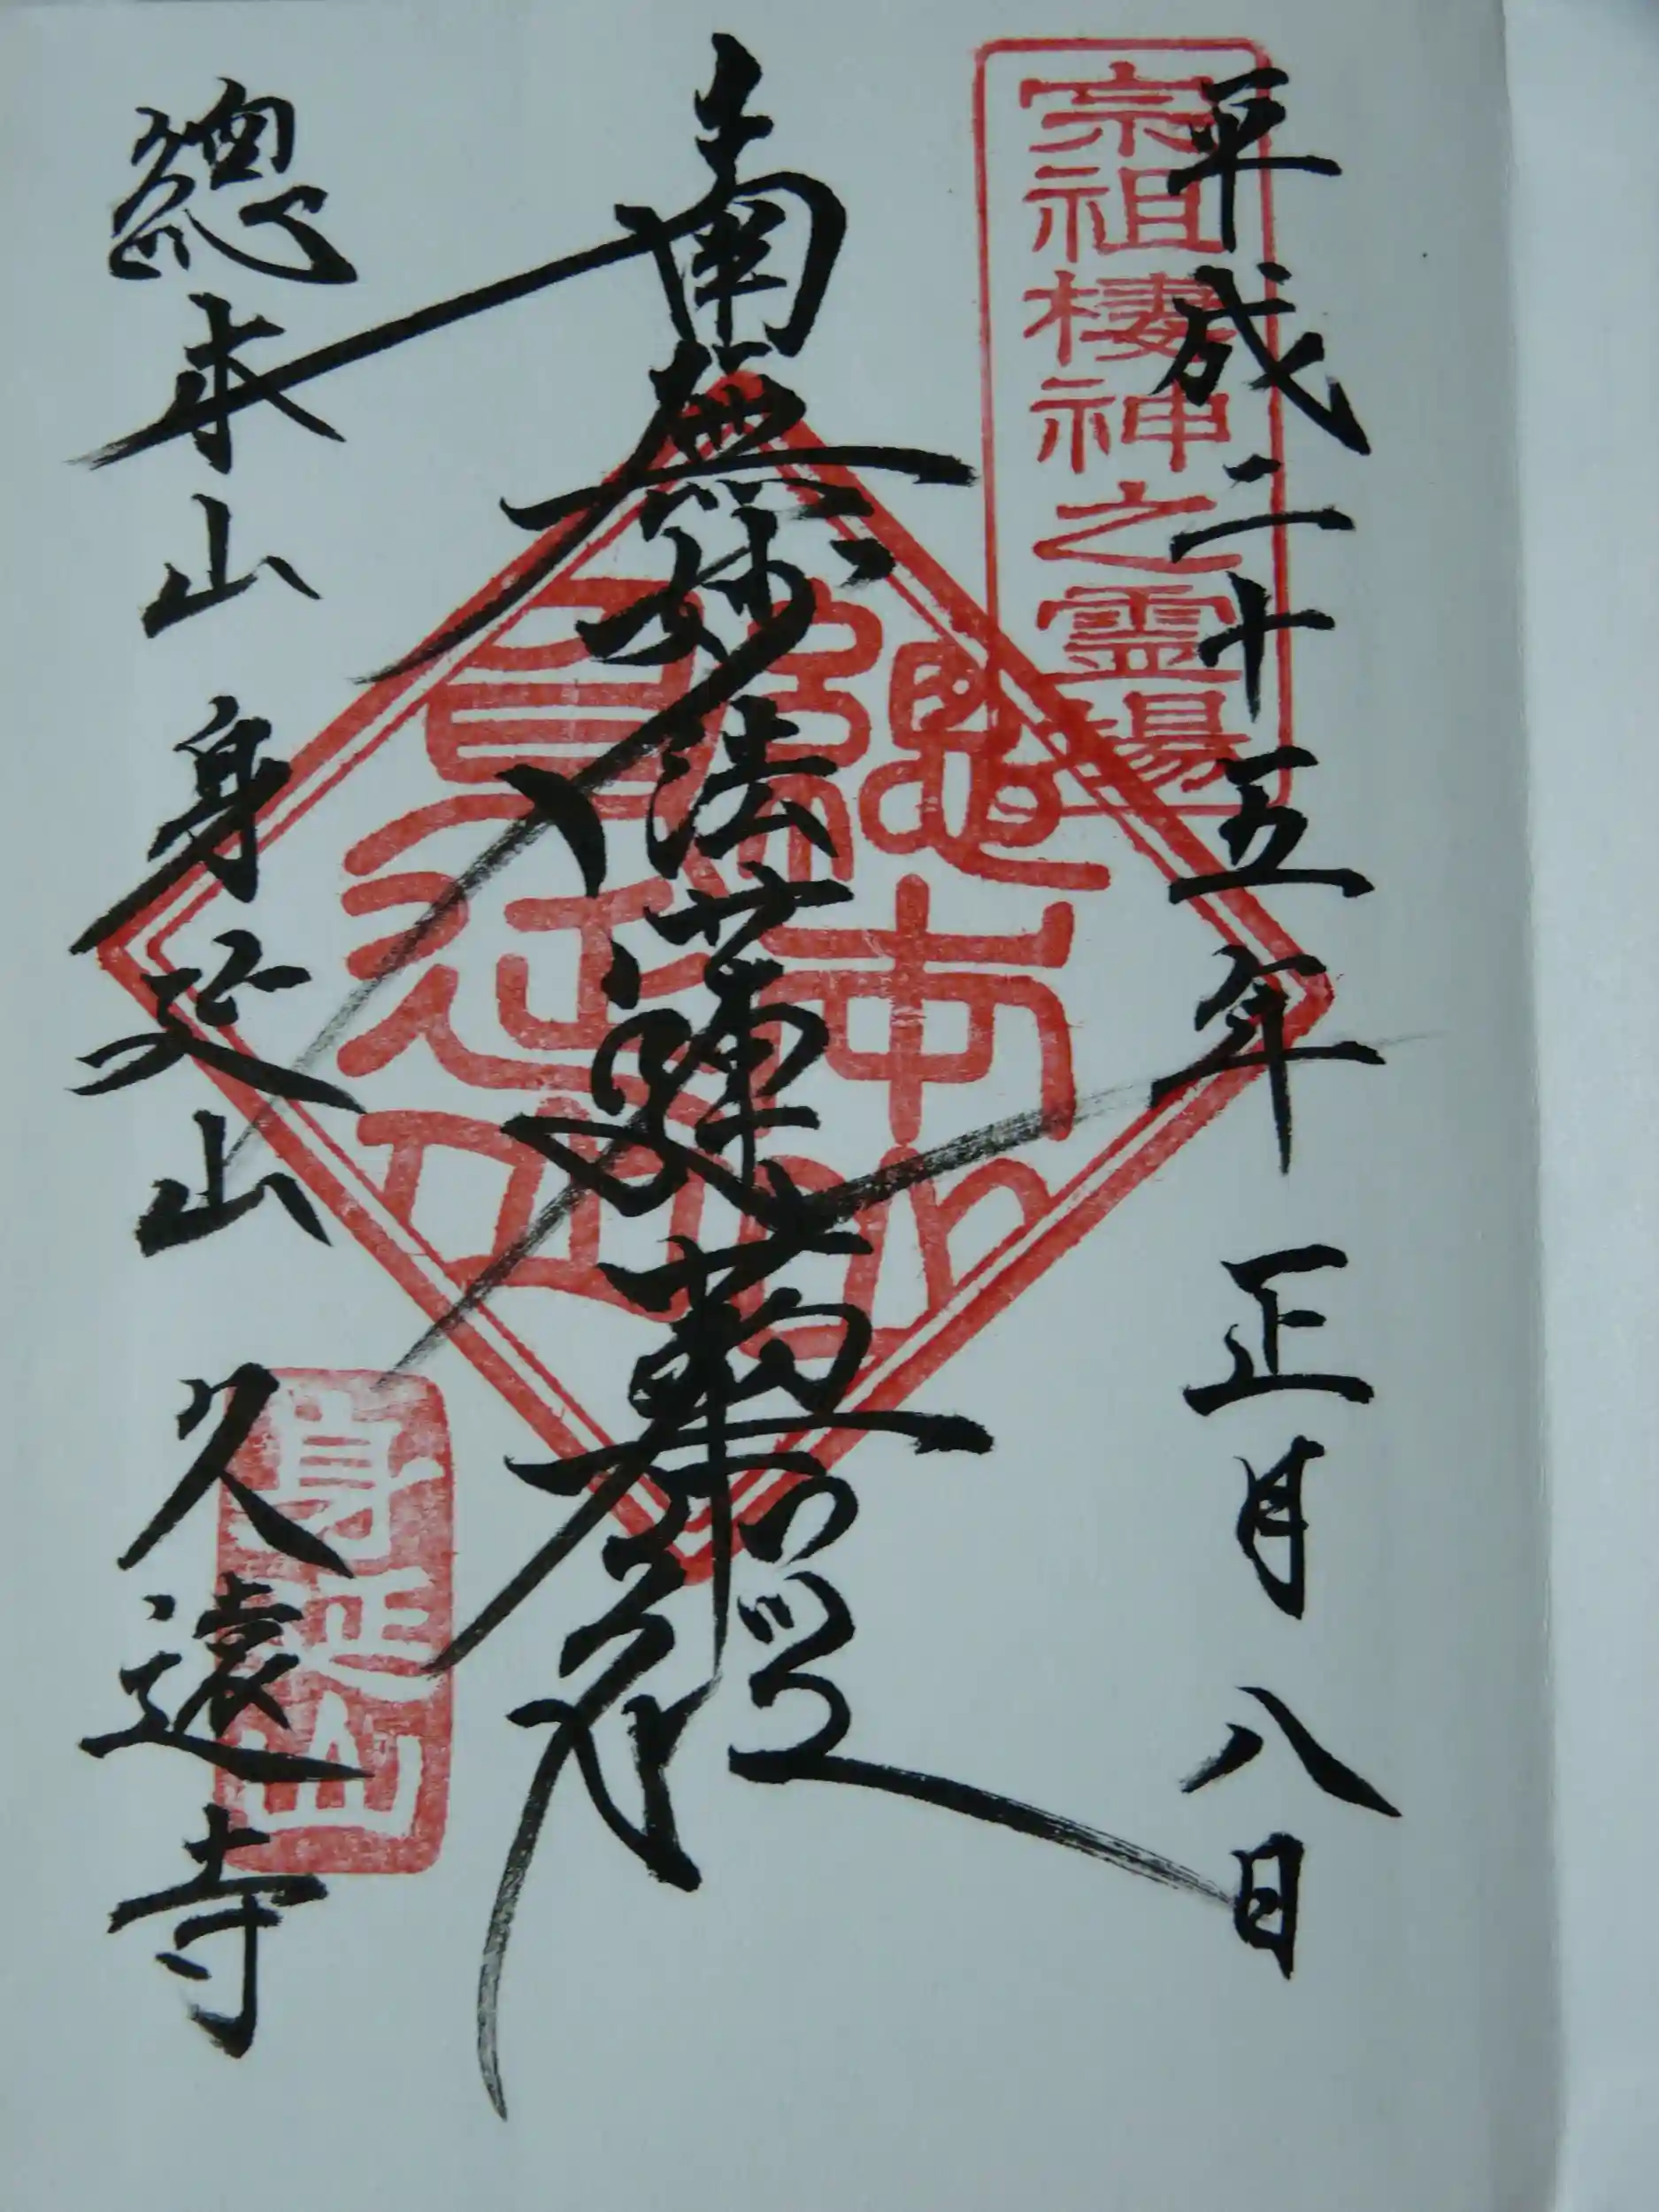 平成二十五年 正月 八日
宗祖棲神之霊場
南無妙法蓮華経
總本山
身延山
總本山 身延山 久遠寺
身延山